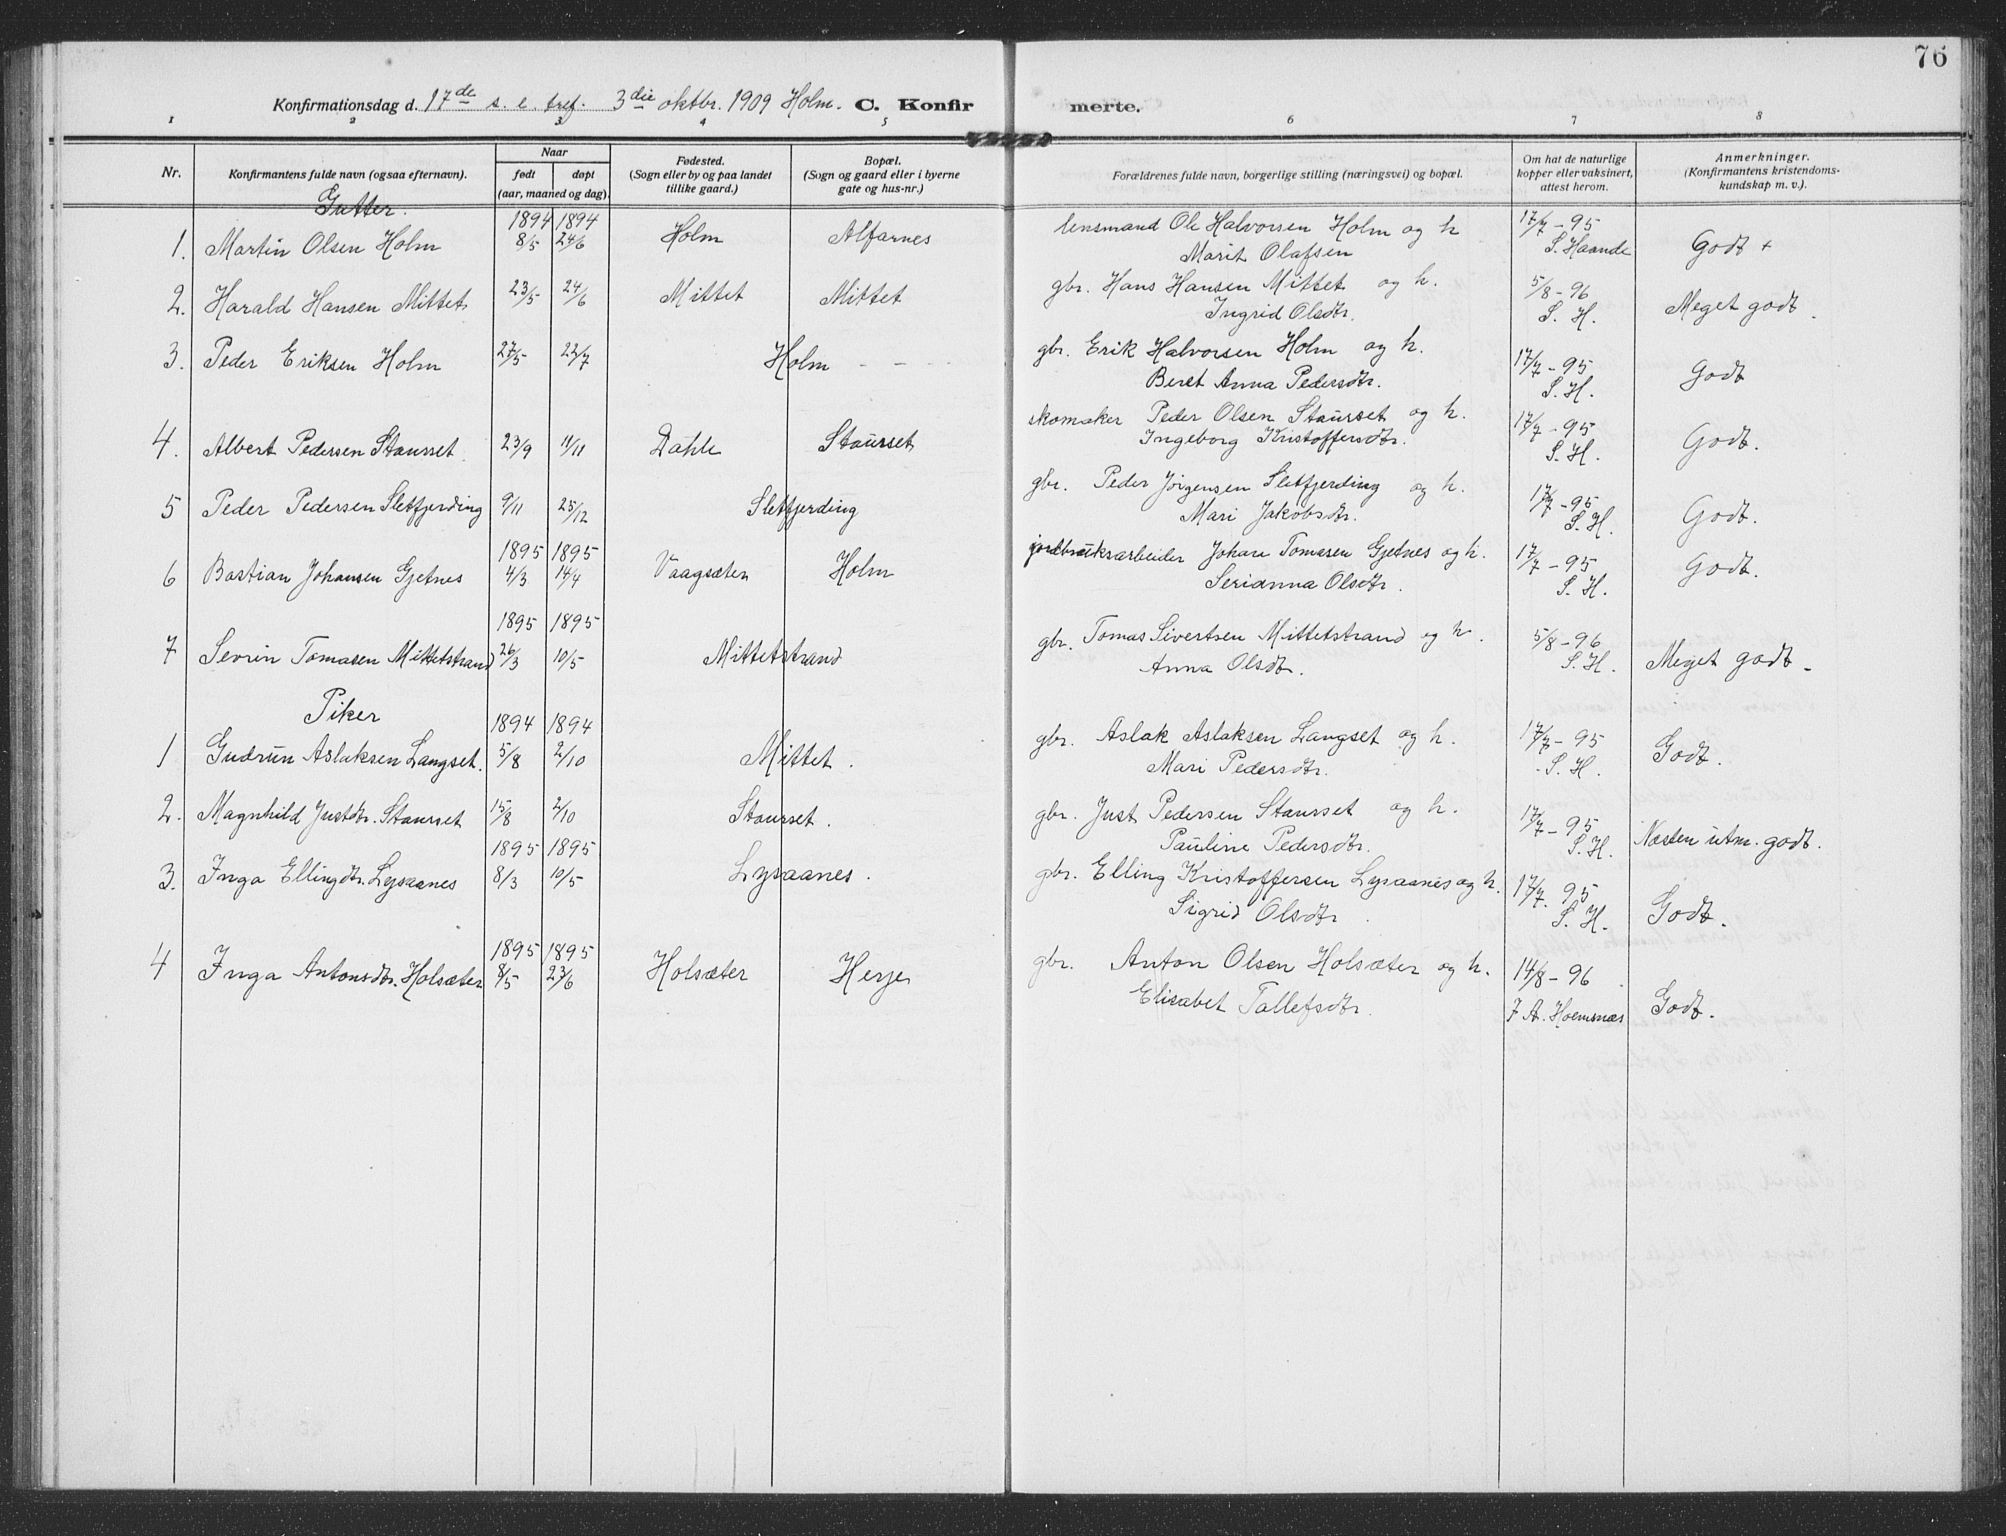 76
Konfirmationsdag d. 17de s. e. tref. 3die oktbr. 1909 Holm. C. Konfir merte.
1 2 3 4 5 6 7 8
Nr. Konfirmantens fulde navn (ogsaa efternavn). Naar født døpt (aar, maaned og dag). Fødested. (Sogn eller by og paa landet tillike gaard.) Bopæl. (Sogn og gaard eller i byerne gate og hus-nr.) Forældrenes fulde navn, borgerlige stilling (næringsvei) og bopæl. Om hat de naturlige kopper eller vaksinert, attest herom. Anmerkninger. (Konfirmantens kristendoms-kundskap m. v.).
Gutter.
1894 1894 lensmand Ole Halvorsen Holm og h 17/7 - 95
1. Martin Olsen Holm 8/5 24/6 Holm Alfarnes Marit Olafsen S. Haande Godt +
2. Harald Hansen Mittet 23/5 24/6 Mittet Mittet gbr. Hans Hansen Mittet og h. 5/8 - 96 Meget godt.
Ingrid Olsdtr. S. H.
3. Peder Eriksen Holm 27/5 22/7 Holm - - - gbr. Erik Halvorsen Holm og h. 17/7 - 95 Godt
Beret Anna Pedersdtr. S. H.
skomaker Peder Olsen Staurset og h. 17/7 - 95
4. Albert Pedersen Staurset 23/9 11/11 Dahle Staurset Ingeborg Kristoffersdtr. S. H. Godt.
5 Peder Pedersen Sletfjerding 9/11 25/12 Sletfjerding gbr. Peder Jørgensen Sletfjerding og h. 17/7 - 95 Godt.
Mari Jakobsdtr. S. H.
1895 1895 jordbruksarbeider Johan Tomasen Gjetnes og h. 17/7 - 95
6 Bastian Johansen Gjetnes 4/3 14/4 Vaagsæter Holm Serianna Olsdtr. S. H. Godt.
1895 1895 gbr. Tomas Sivertsen Mittetstrand og h. 5/8 - 96
7 Sevrin Tomasen Mittetstrand 26/3 10/5 Mittetstrand Anna Olsdtr. S. H. Meget godt -
Piker
1894 1894
1 Gudrun Aslaksen Langset. 5/8 2/10 Mittet. gbr. Aslak Aslaksen Langset og h. 17/7 - 95 Godt.
Mari Pedersdtr. S. H.
2. Magnhild Justdtr. Staurset 15/8 2/10 Staurset. gbr. Just Pedersen Staurset og h. 17/7 - 95 Næsten utm. godt.
Pauline Pedersdtr. S. H.
1895 1895
3. Inga Ellingdtr. Lysaanes 8/3 10/5 Lysaanes. gbr. Elling Kristoffersen Lysaanes og h. 17/7. 95 Godt.
Sigrid Olsdtr. S. H.
1895 1895
4 Inga Antonsdtr. Holsæter 8/5 23/6 Holsæter Herje gbr. Anton Olsen Holsæter og h. 14/8 - 96 Godt.
Elisabet Tollefsdtr. A. Hoemsnæs